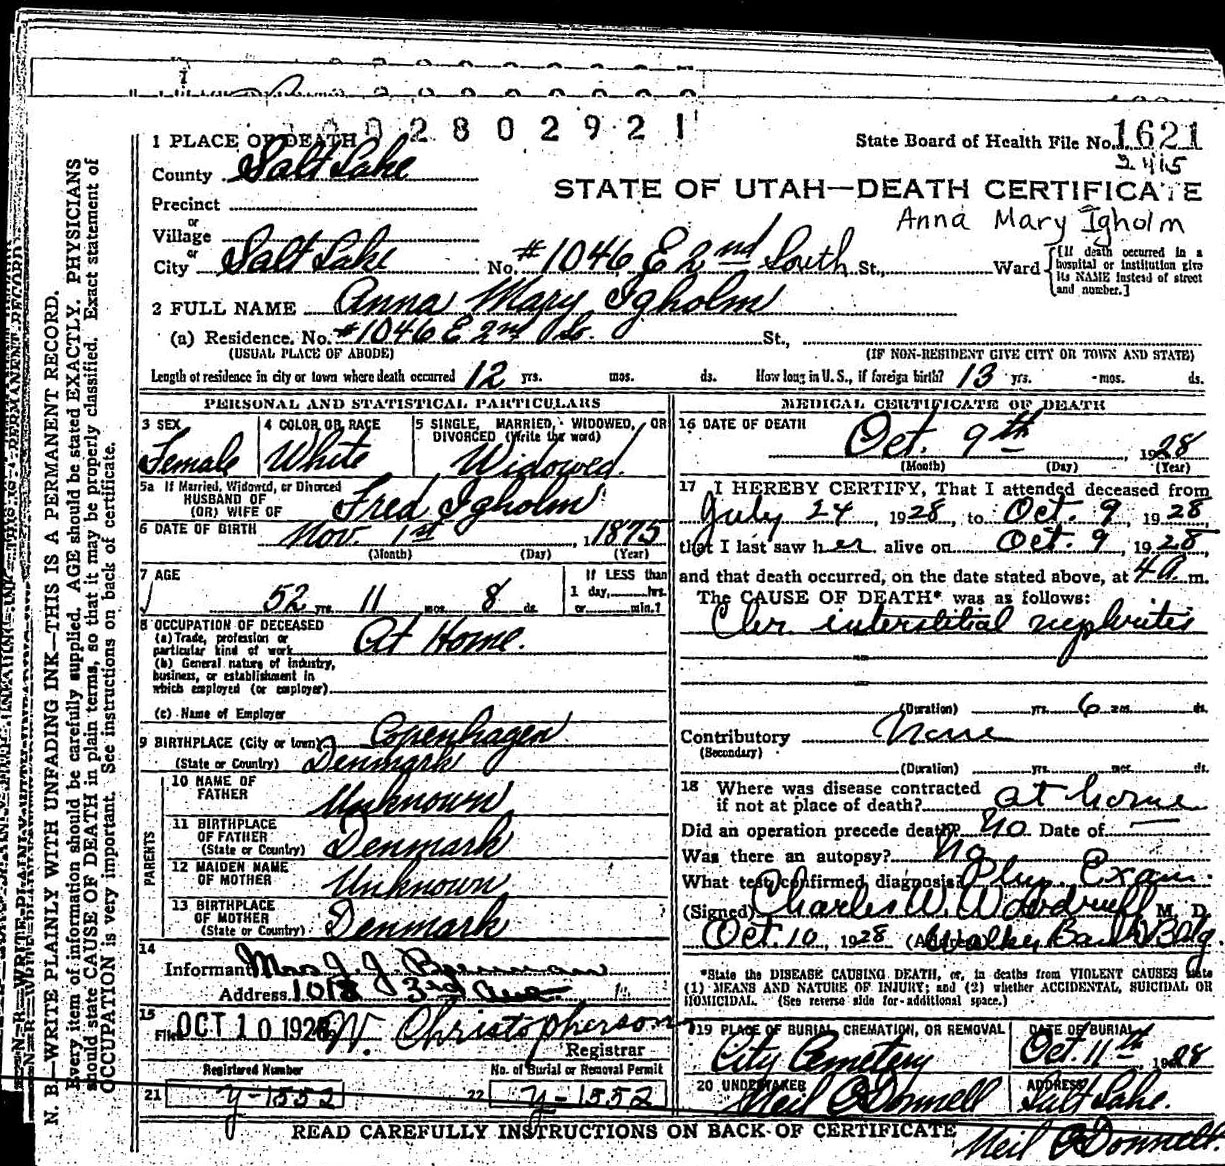 002802921
1 PLACE OF DEATH
State Board of Health File No. 1621
County Salt Lake
STATE OF UTAH—DEATH CERTIFICATE
Precinct
Anna Mary Igholm
or
Village
or
City Salt Lake No. #1046 E 2nd South St., Ward {[If death occurred in a hospital or institution give its NAME instead of street and number.]
2 FULL NAME Anna Mary Igholm
(a) Residence. No. #1046 E 2nd So. St.,
(USUAL PLACE OF ABODE) (IF NON-RESIDENT GIVE CITY OR TOWN AND STATE)
Length of residence in city or town where death occurred 12 yrs. mos. ds. How long in U.S., if foreign birth? 13 yrs. mos. ds.
PERSONAL AND STATISTICAL PARTICULARS
3 SEX
Female
4 COLOR OR RACE
White
5 SINGLE, MARRIED, WIDOWED, OR
DIVORCED (Write the word)
Widowed.
5a If Married, Widowed, or Divorced
HUSBAND OF
(OR) WIFE OF Fred Igholm
6 DATE OF BIRTH Nov. 1st, 1875
(Month) (Day) (Year)
7 AGE
52 yrs. 11 mos. 8 ds.
If LESS than
1 day, hrs.
or min.?
8 OCCUPATION OF DECEASED
(a) Trade, profession or
particular kind of work At Home.
(b) General nature of industry,
business, or establishment in
which employed (or employer)
(c) Name of Employer
9 BIRTHPLACE (City or town) Copenhagen
(State or Country) Denmark
PARENTS
10 NAME OF
FATHER Unknown
11 BIRTHPLACE
OF FATHER
(State or Country) Denmark
12 MAIDEN NAME
OF MOTHER Unknown
13 BIRTHPLACE
OF MOTHER
(State or Country) Denmark
14
Informant Mrs J. J.
Address 1018 3rd Ave.
15
Filed OCT 10 1928 W. Christopherson
Registrar
Registered Number No. of Burial or Removal Permit
21 Y-1552 22 Y-1552
MEDICAL CERTIFICATE OF DEATH
16 DATE OF DEATH
Oct. 9th 1928
(Month) (Day) (Year)
17 I HEREBY CERTIFY, That I attended deceased from
July 24, 1928, to Oct. 9, 1928
that I last saw her alive on Oct. 9, 1928,
and that death occurred, on the date stated above, at 4 a m.
The CAUSE OF DEATH* was as follows:
Chr. interstitial nephritis
(Duration) yrs. 6 mos. ds.
Contributory None
(Secondary)
(Duration) yrs. mos. ds.
18 Where was disease contracted
if not at place of death? at home
Did an operation precede death? No Date of —
Was there an autopsy? No
What test confirmed diagnosis Phys. Exam.
(Signed) Charles W. Woodruff M. D.
Oct. 10, 1928 (Address) Walker Bank Bldg.
*State the DISEASE CAUSING DEATH, or, in deaths from VIOLENT CAUSES state
(1) MEANS AND NATURE OF INJURY; and (2) whether ACCIDENTAL, SUICIDAL OR
HOMICIDAL. (See reverse side for additional space.)
19 PLACE OF BURIAL, CREMATION, OR REMOVAL
City Cemetery
DATE OF BURIAL
Oct. 11th 1928
20 UNDERTAKER
Neil O'Donnell
ADDRESS
Salt Lake.
READ CAREFULLY INSTRUCTIONS ON BACK OF CERTIFICATE
Neil O'Donnell
N. B.—WRITE PLAINLY WITH UNFADING INK—THIS IS A PERMANENT RECORD.
Every item of information should be carefully supplied. AGE should be stated EXACTLY. PHYSICIANS
should state CAUSE OF DEATH in plain terms, so that it may be properly classified. Exact statement of
OCCUPATION is very important. See instructions on back of certificate.